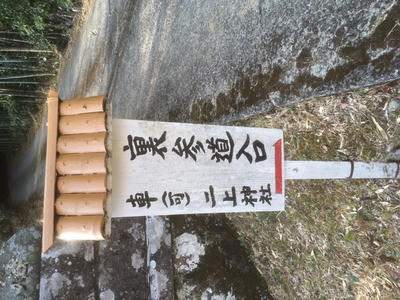 裏参道入口
車(可) 二上神社